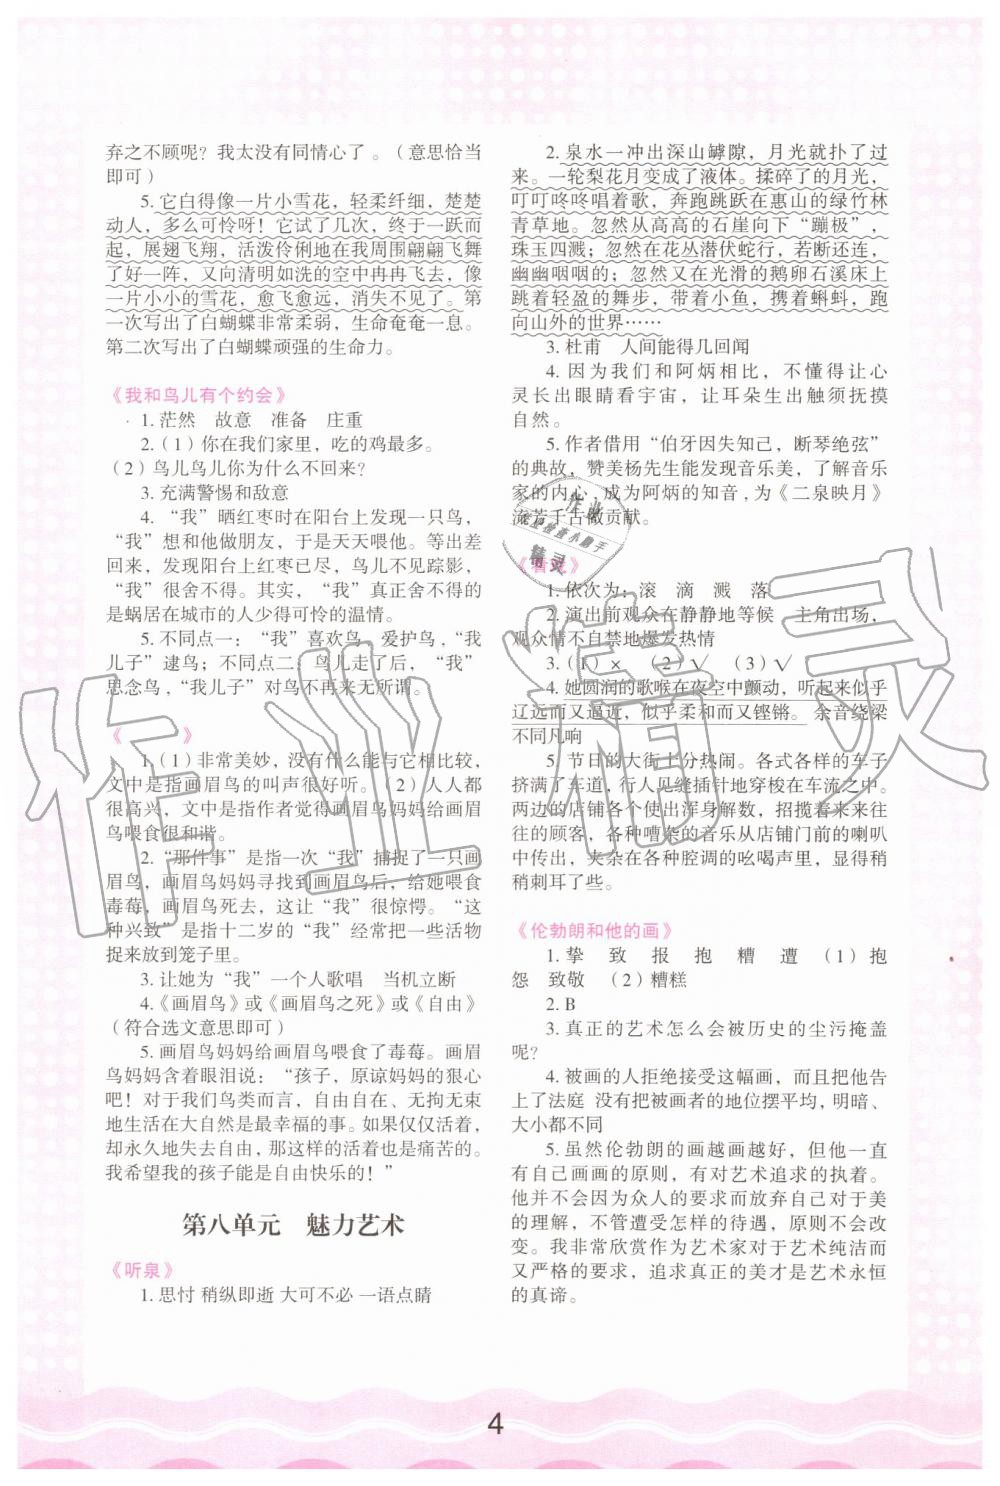 弃之不顾呢？我太没有同情心了。（意思恰当
即可）
5. 它白得像一片小雪花，轻柔纤细，楚楚
动人，多么可怜呀！它试了几次，终于一跃而
起，展翅飞翔，活泼伶俐地在我周围翩翩飞舞
了好一阵，又向清明如洗的空中冉冉飞去，像
一片小小的雪花，愈飞愈远，消失不见了。第
一次写出了白蝴蝶非常柔弱，生命奄奄一息。
第二次写出了白蝴蝶顽强的生命力。
《我和鸟儿有个约会》
1. 茫然 故意 准备 庄重
2.（1）你在我们家里，吃的鸡最多。
（2）鸟儿鸟儿你为什么不回来？
3. 充满警惕和敌意
4. “我”晒红枣时在阳台上发现一只鸟，
“我”想和他做朋友，于是天天喂他。等出差
回来，发现阳台上红枣已尽，鸟儿不见踪影，
“我”很舍不得。其实，“我”真正舍不得的
是蜗居在城市的人少得可怜的温情。
5. 不同点一：“我”喜欢鸟，爱护鸟，“我
儿子”逮鸟；不同点二：鸟儿走了后，“我”
思念鸟，“我儿子”对鸟不再来无所谓。
《 》
1.（1）非常美妙，没有什么能与它相比较，
文中是指画眉鸟的叫声很好听。（2）人人都
很高兴，文中是指作者觉得画眉鸟妈妈给画眉
鸟喂食很和谐。
2. “那件事”是指一次“我”捕捉了一只画
眉鸟，画眉鸟妈妈寻找到画眉鸟后，给她喂食
毒莓，画眉鸟死去，这让“我”很惊愕。“这
种兴致”是指十二岁的“我”经常把一些活物
捉来放到笼子里。
3. 让她为“我”一个人歌唱 当机立断
4.《画眉鸟》或《画眉鸟之死》或《自由》
（符合选文意思即可）
5. 画眉鸟妈妈给画眉鸟喂食了毒莓。画眉
鸟妈妈含着眼泪说：“孩子，原谅妈妈的狠心
吧！对于我们鸟类而言，自由自在、无拘无束
地生活在大自然是最幸福的事。如果仅仅活着，
却永久地失去自由，那这样的活着也是痛苦的。
我希望我的孩子能是自由快乐的！”
第八单元 魅力艺术
《听泉》
1. 思忖 稍纵即逝 大可不必 一语点睛
2. 泉水一冲出深山罅隙，月光就扑了过
来。一轮梨花月变成了液体。揉碎了的月光，
叮叮咚咚唱着歌，奔跑跳跃在惠山的绿竹林
青草地。忽然从高高的石崖向下“蹦极”，
珠玉四溅；忽然在花丛潜伏蛇行，若断还连，
幽幽咽咽的；忽然又在光滑的鹅卵石溪床上
跳着轻盈的舞步，带着小鱼，携着蝌蚪，跑
向山外的世界……
3. 杜甫 人间能得几回闻
4. 因为我们和阿炳相比，不懂得让心
灵长出眼睛看宇宙，让耳朵生出触须抚摸
自然。
5. 作者借用“伯牙因失知己，断琴绝弦”
的典故，赞美杨先生能发现音乐美，了解音乐
家的内心，成为阿炳的知音，为《二泉映月》
流芳千古做贡献。
《看戏》
1. 依次为：滚 滴 溅 落
2. 演出前观众在静静地等候 主角出场，
观众情不自禁地爆发热情
3.（1）×（2）√（3）√
4. 她圆润的歌喉在夜空中颤动，听起来似乎
辽远而又逼近，似乎柔和而又铿锵。 余音绕梁
不同凡响
5. 节日的大街十分热闹。各式各样的车子
挤满了车道，行人见缝插针地穿梭在车流之中。
两边的店铺各个使出浑身解数，招揽来来往
往的顾客，各种嘈杂的音乐从店铺门前的喇叭
中传出，夹杂在各种腔调的吆喝声里，显得稍
稍刺耳了些。
《伦勃朗和他的画》
1. 挚 致 报 抱 糟 遭 （1）抱
怨 致敬 （2）糟糕
2. B
3. 真正的艺术怎么会被历史的尘污掩盖
呢？
4. 被画的人拒绝接受这幅画，而且把他告
上了法庭 没有把被画者的地位摆平均，明暗、
大小都不同
5. 虽然伦勃朗的画越画越好，但他一直
有自己画画的原则，有对艺术追求的执着。
他并不会因为众人的要求而放弃自己对于美
的理解，不管遭受怎样的待遇，原则不会改
变。我非常欣赏作为艺术家对于艺术纯洁而
又严格的要求，追求真正的美才是艺术永恒
的真谛。
4
作业精灵